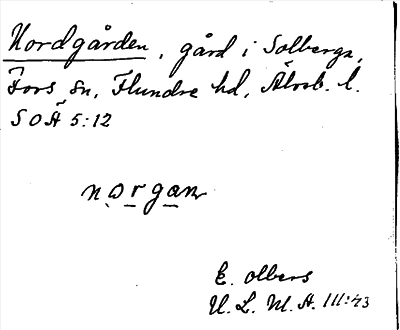 Nordgården, gård i Solberga,
Fors sn, Flundre hd, Älvsb. l.
SOÄ 5:12
norgan
E. Olbers
U. L. M. A. III:43